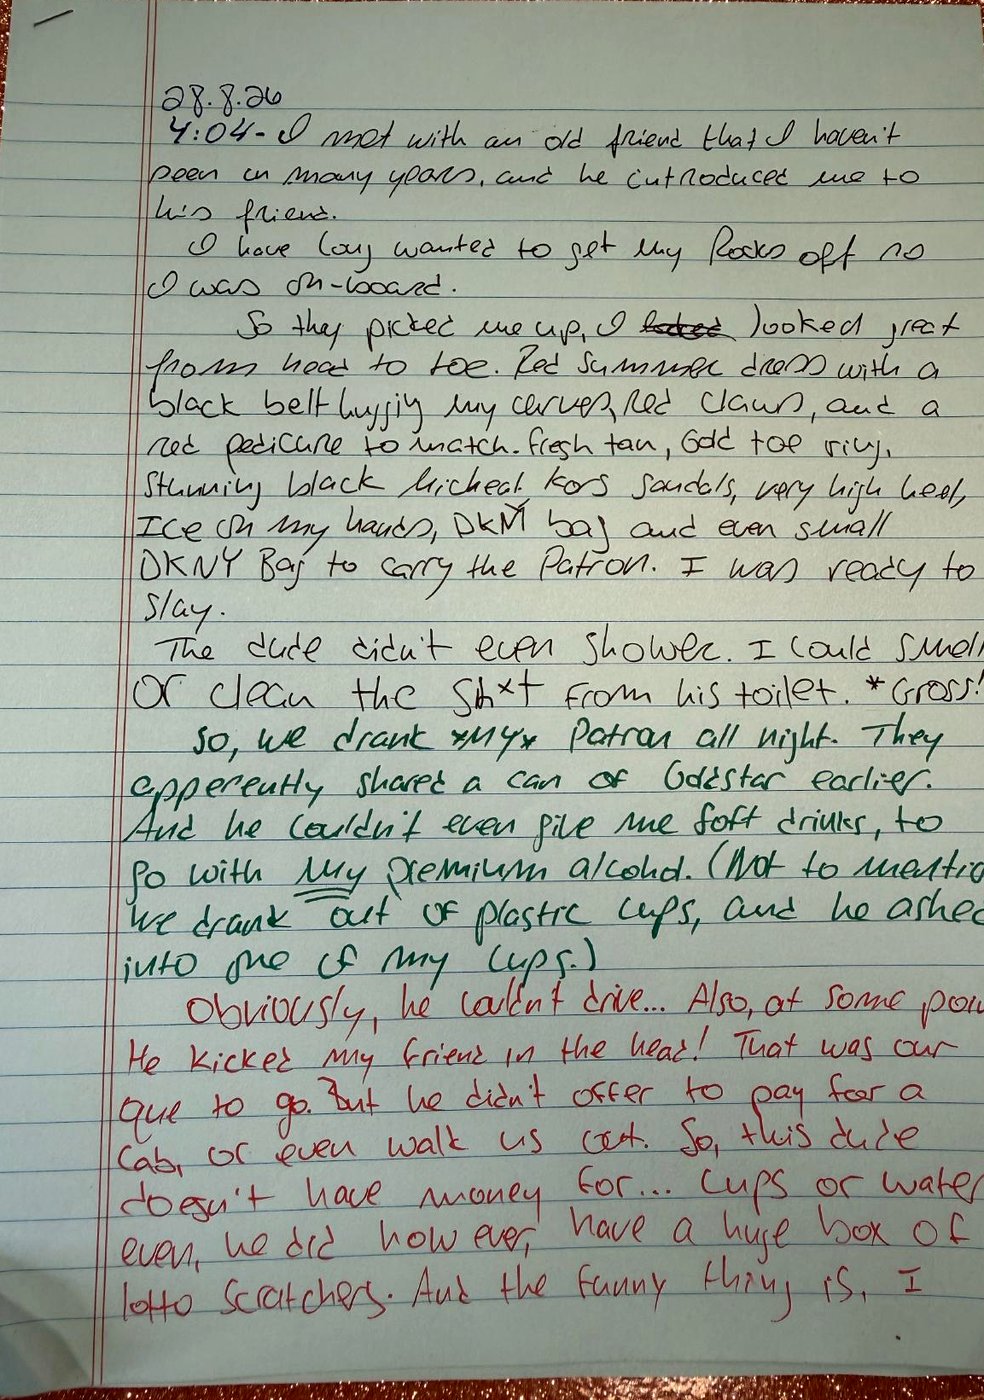 28.8.26
4:04- I met with an old friend that I haven't
seen in many years, and he introduced me to
his friend.
I have long wanted to get my Rocks off so
I was on-board.
So they picked me up, I looked great
from head to toe. Red summer dress with a
black belt huggig my curves, Red claws, and a
red pedicure to match. fresh tan, Gold toe ring,
Stunning black Micheal Kors Sandals, very high heel,
Ice on my hands, DKNY bag and even small
DKNY Bag to carry the Patron. I was ready to
slay.
The dude didn't even shower. I could smell
Or clean the Sh*t from his toilet. *Gross!
So, we drank *MY* Patron all night. They
apperently shared a can of Goldstar earlier.
And he couldn't even give me Soft drinks, to
go with My premium alcohol. (Not to mentio
We drank out of plastic cups, and he ashed
into one of my cups.)
Obviously, he couldn't drive... Also, at some poin
He kicked my friend in the head! That was our
que to go. But he didn't offer to pay for a
Cab, or even walk us out. So, this dude
doesn't have money for... Cups or water
even, he did however, have a huge box of
lotto scratchers. And the funny thing is, I